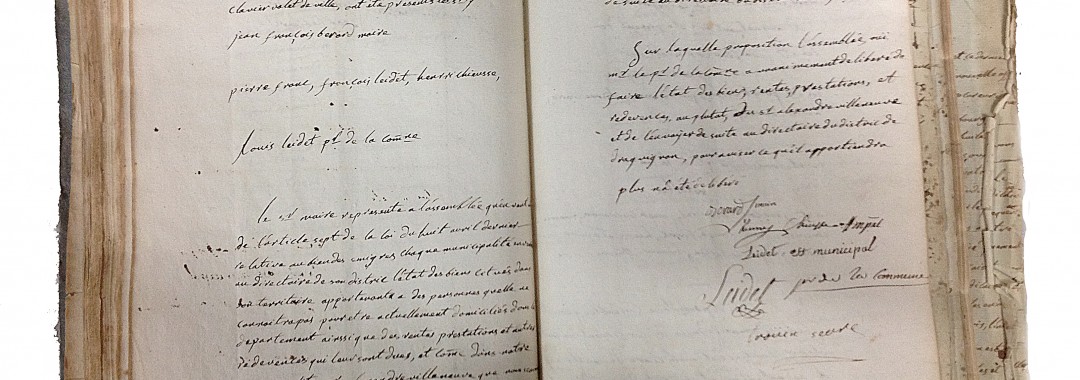 clavier valet de ville, ont été présents
jean françois berard maire
pierre franc, françois leidet, henri chieusse,
Louis leidet pr. de la com̃ne
le sr. maire represente a l'assemblée qu'en
de l'article sept de la loi du huit avril dernier
relative au bien des emigres chaque municipalite
au directoire de son distric l'état des biens situés dans
son territoire appartenants a des personnes qu'elle ne
connoitra pas pour etre actuellement domiciliés dans le
departement ainssi que des rentes prestations et autres
rédeventes qui leur sont dues, et come dans notre
villeneuve que nous
de suite au directoire
Sur laquelle proposition l'assemblée, oui
mr. le pr. de la com̃ne a unanimement deliberé de
faire l'état des biens, rentes, prestations, et
redevences, au plutot, du sr. alexandre villeneuve
et de l'envoyer de suite au directoire du district de
draguignan, pour aviser ce qu'il appartiendra
plus n'a été deliberé
berard maire
chieusse
Leidet off municipal
Leidet pr de la Commune
secre